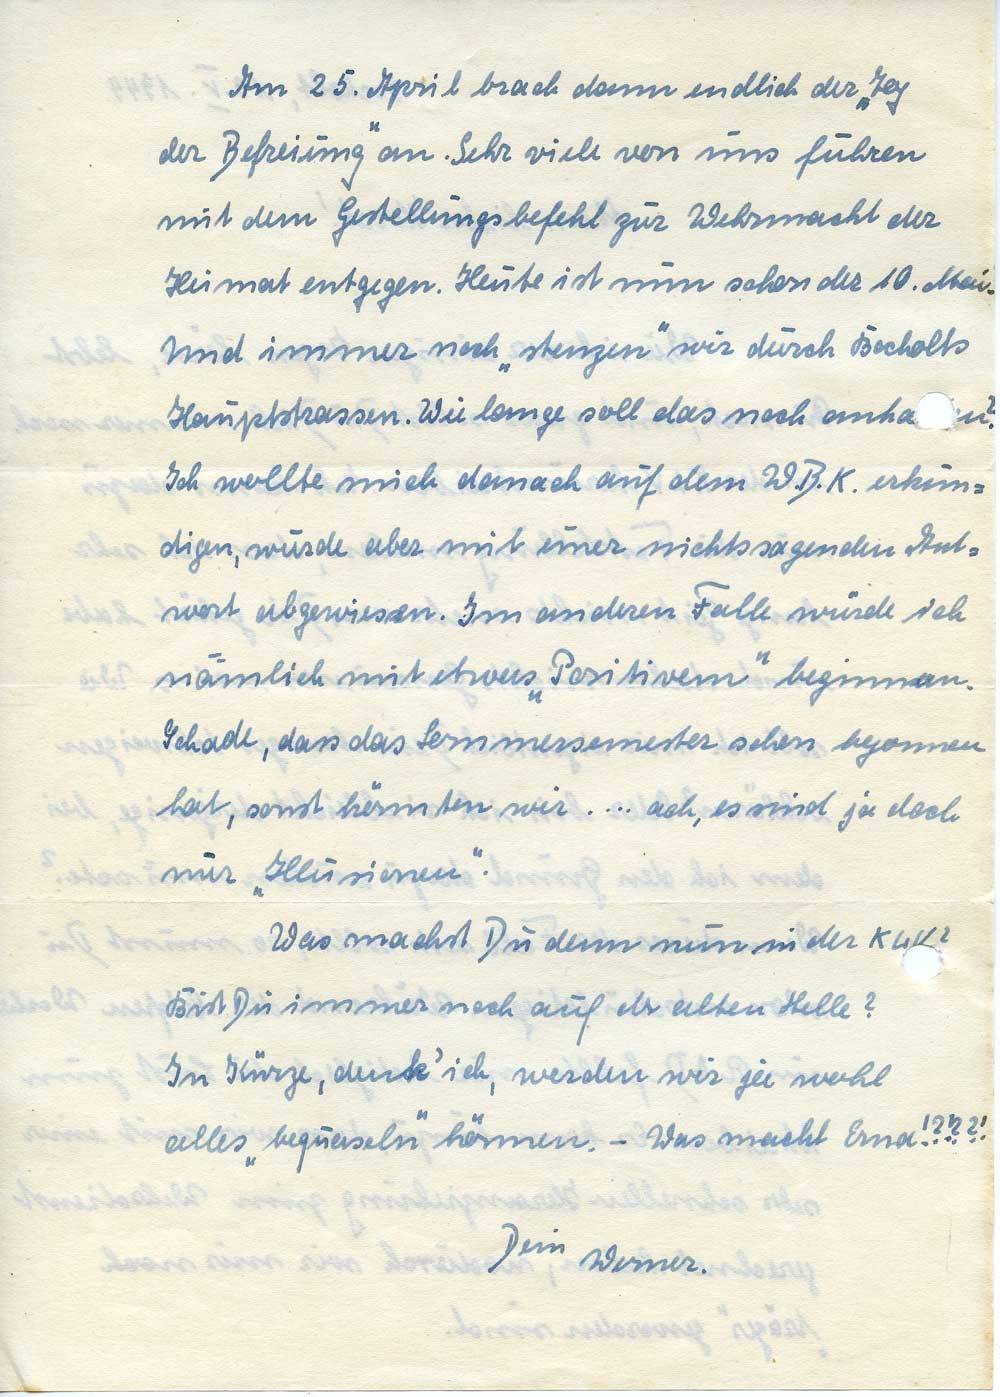 Am 25. April brach dann endlich der „Tag
der Befreiung" an. Sehr viele von uns fuhren
mit dem Gestellungsbefehl zur Wehrmacht der
Heimat entgegen. Heute ist nun schon der 10. Mai.
Und immer noch „stenzen" wir durch Bocholts
Hauptstrassen. Wie lange soll das noch anha n?
Ich wollte mich danach auf dem W.B.K. erkun=
digen, wurde aber mit einer nichtssagenden Ant=
wort abgewiesen. Im anderen Falle würde ich
nämlich mit etwas „Positivem" beginnen.
Schade, dass das Sommersemester schon begonnen
hat, sonst könnten wir .... ach, es sind ja doch
nur „Illusionen".
Was machst Du denn nun in der
Bist Du immer noch auf der alten Stelle?
In Kürze, denk' ich, werden wir ja wohl
alles „bequaseln" können. – Was macht Erna!?!?!?!
Dein Werner.